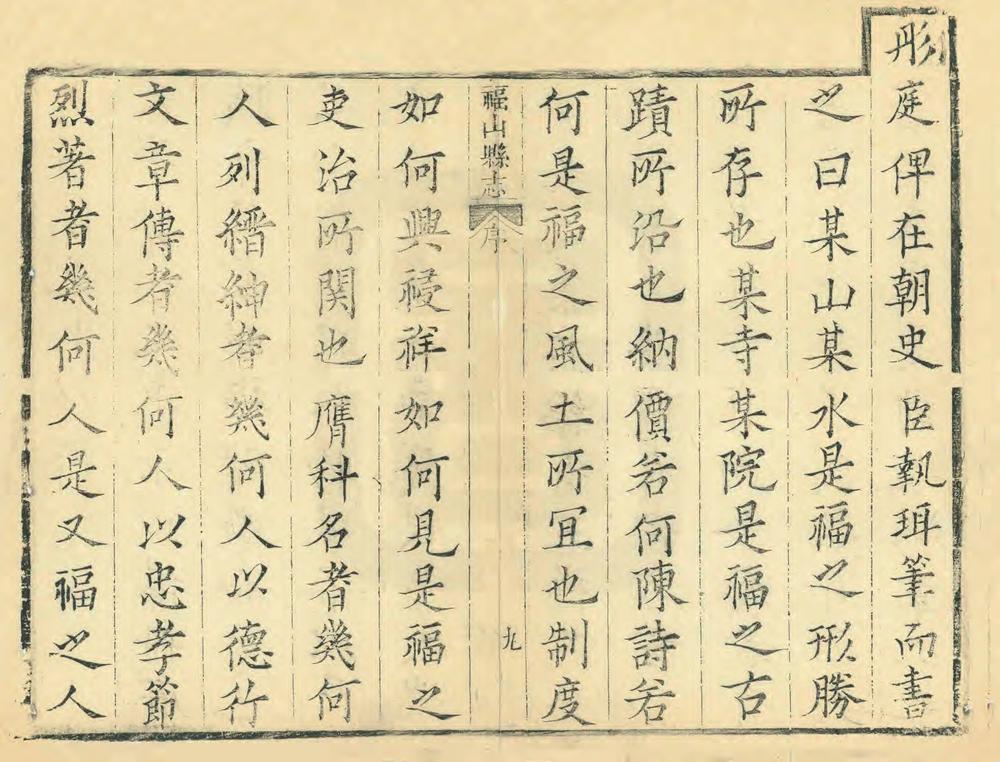 彤庭俾在朝史臣執珥筆而書
之曰某山某水是福之形勝
所存也某寺某院是福之古
蹟所沿也納價若何陳詩若
何是福之風土所宜也制度
福山縣志
序
九
如何興祲祥如何見是福之
吏治所関也膺科名者幾何
人列縉紳者幾何人以德行
文章傳者幾何人以忠孝節
烈著者幾何人是又福之人